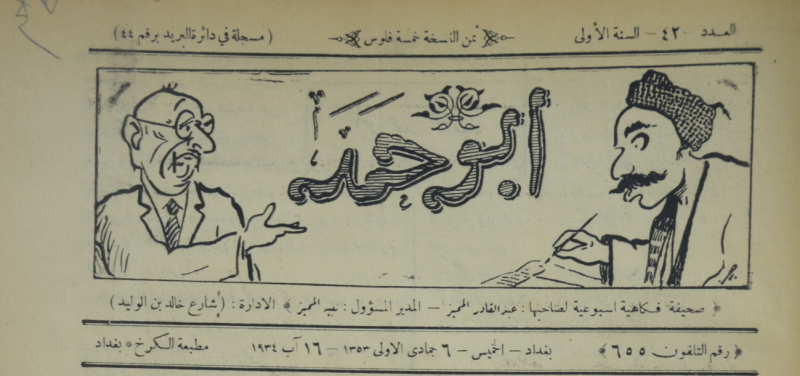 العدد - ٤٢ - السنة الأولى ثمن النسخة خمسة فلوس (مسجلة في دائرة البريد برقم ٤٤)
أبو حمد
﴿ صحيفة فكاهية اسبوعية لصاحبها: عبدالقادر المميز - المدير المسؤول: المميز ﴾ الادارة: (شارع خالد بن الوليد)
﴿ رقم التلفون ٦٥٥ ﴾ بغداد - الخميس - ٦ جمادى الاولى ١٣٥٣ - ١٦ آب ١٩٣٤ مطبعة الكرخ * بغداد